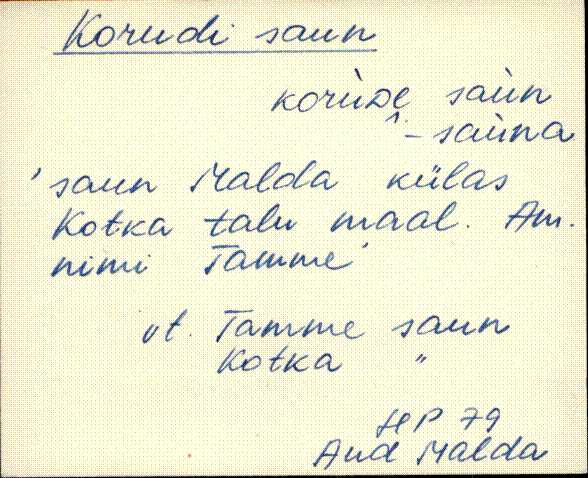 Korudi saun
korùᴅe saùn
^ - saùna
'saun Malda külas
Kotka talu maal. Am.
nimi Tamme'
vt. Tamme saun
Kotka "
HP 79
Aud Malda